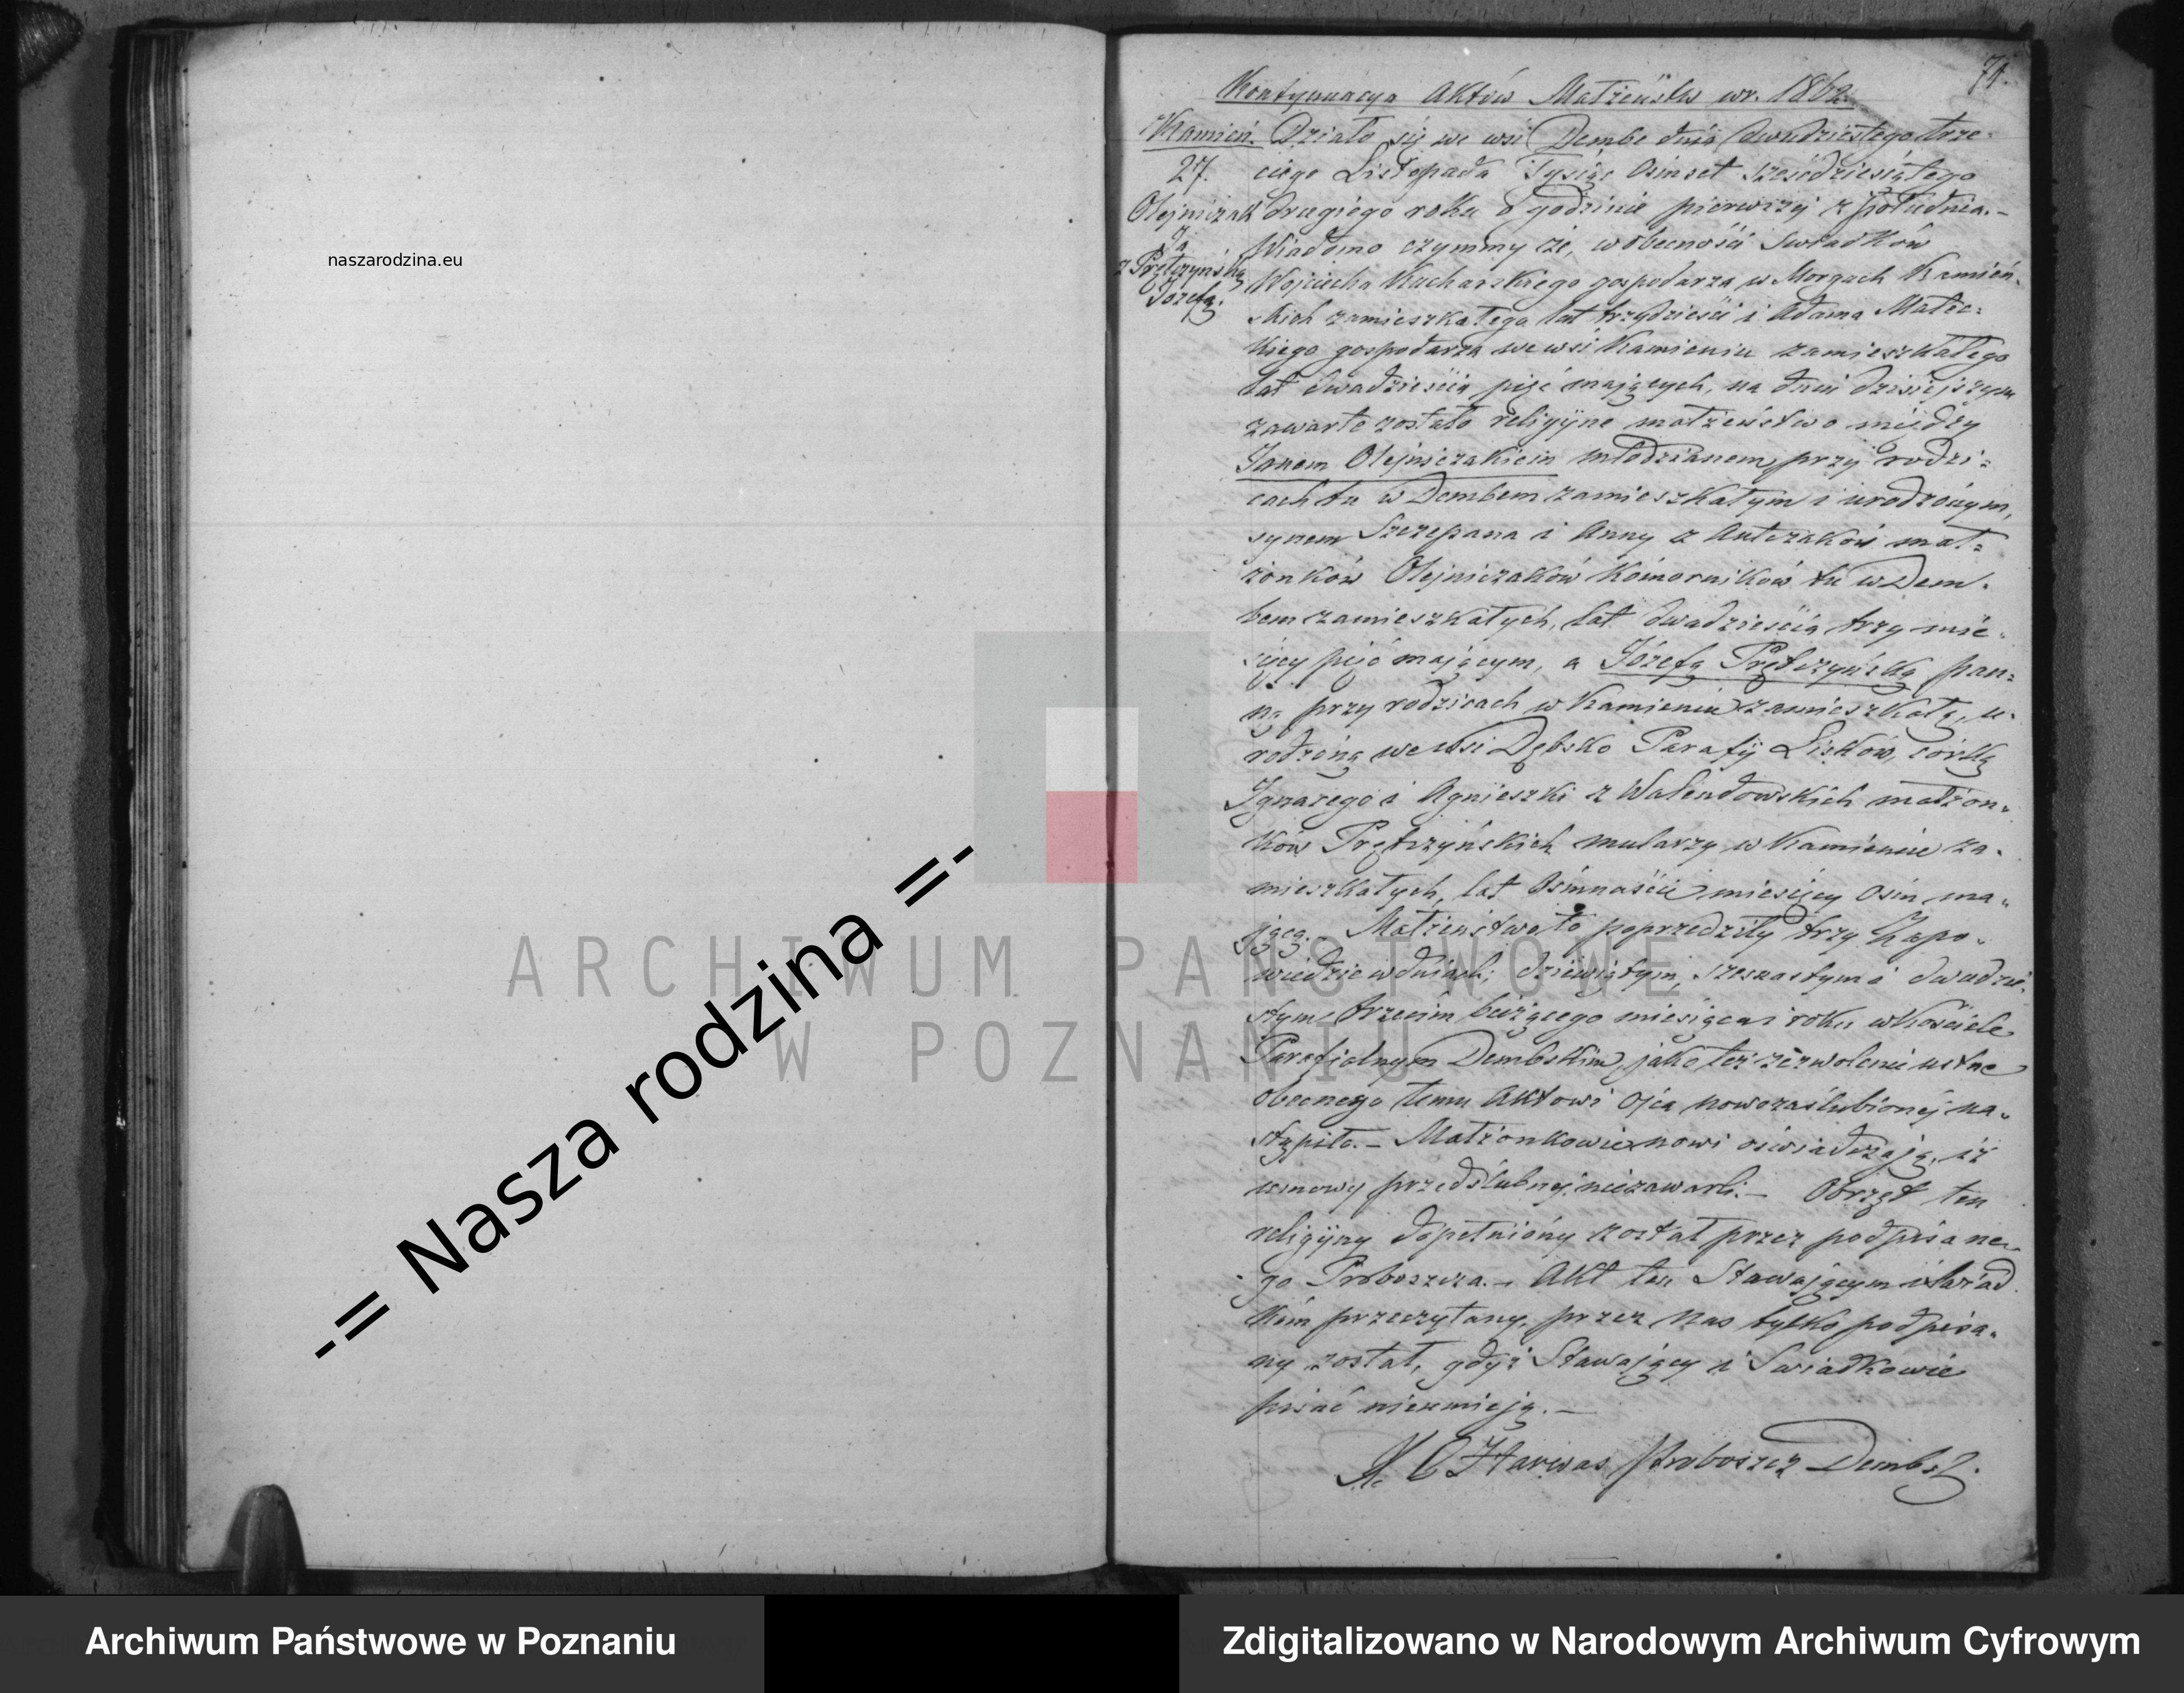 naszarodzina.eu
74.
Kontynuacya Aktów Małżeństw w r. 1862.
Kamień.
27.
Olejniczak
Ja
z Prętczyńską
Józefą.
Działo się we wsi Dembe dnia dwudziestego trze-
ciego Listopada Tysiąc Osimset sześćdziesiątego
drugiego roku o godzinie pierwszéj z południa.–
Wiadomo czynimy że, w obecności Swiadków
Wojciecha Kucharskiego gospodarza w Morgach Kamień-
skich zamieszkałego lat trzydzieści i Adama Małec-
kiego gospodarza we wsi Kamieniu zamieszkałego
lat dwadzieścia pięć mających, na dniu dzisiejszym
zawarte zostało religijne małżeństwo między
Janem Olejniczakiem młodzianem, przy rodzi-
cach tu w Dembem zamieszkałym i urodzonym,
synem Szczepana i Anny z Antczaków mał-
żonków Olejniczaków Komorników tu w Dem-
bem zamieszkałych, lat dwadzieścia trzy mie-
sięcy pięć mającym, a Józefą Prętczyńską pan-
ną przy rodzicach w Kamieniu zamieszkałą, u-
rodzoną we wsi Dębsko Parafij Lisków, córką
Ignacego i Agnieszki z Walendowskich małżon-
ków Prętczyńskich mularzy w Kamieniu za-
mieszkałych, lat Osimnaście miesięcy Osim ma-
jącą.– Małżeństwo to poprzedziły trzy Zapo-
wiedzie w dniach; dziewiątym, szesnastym i dwudzie-
stym trzecim bieżącego miesiąca i roku w Kościele
Parafialnym Dembskim, jako też zezwolenie ustne
obecnego temu Aktowi Ojca nowozaślubionéj na-
stąpiło.– Małżonkowie nowi oświadczają, iż
umowy przedślubnéj niezawarli.– Obrzęd ten
religijny dopełniony został przez podpisane-
go Proboszcza.– Akt ten Stawającym i Świad-
kom przeczytany, przez Nas tylko podpisa-
ny został, gdyż Stawający i Swiadkowie
pisać nieumieją.–
Proboszcz Dembs.
-= Nasza rodzina =-
ARCHIWUM PAŃSTWOWE
W POZNANIU
Archiwum Państwowe w Poznaniu
Zdigitalizowano w Narodowym Archiwum Cyfrowym